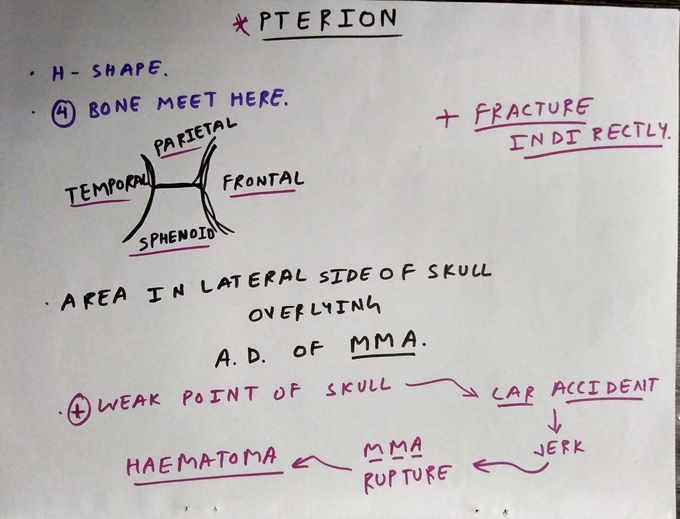 * PTERION
· H - SHAPE.
· 4 BONE MEET HERE.
+ FRACTURE
INDIRECTLY.
PARIETAL
TEMPORAL
FRONTAL
SPHENOID
· AREA IN LATERAL SIDE OF SKULL
OVERLYING
A. D. OF MMA.
· + WEAK POINT OF SKULL → CAR ACCIDENT
↓
JERK
MMA
RUPTURE
HAEMATOMA